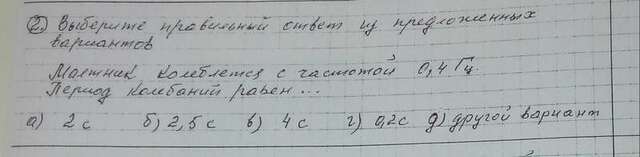 2. Выберите правильный ответ из предложенных
вариантов
Маятник колеблется с частотой 0,4 Гц.
Период колбаний равен...
а) 2 с б) 2,5 с в) 4 с г) 0,2с д) другой вариант